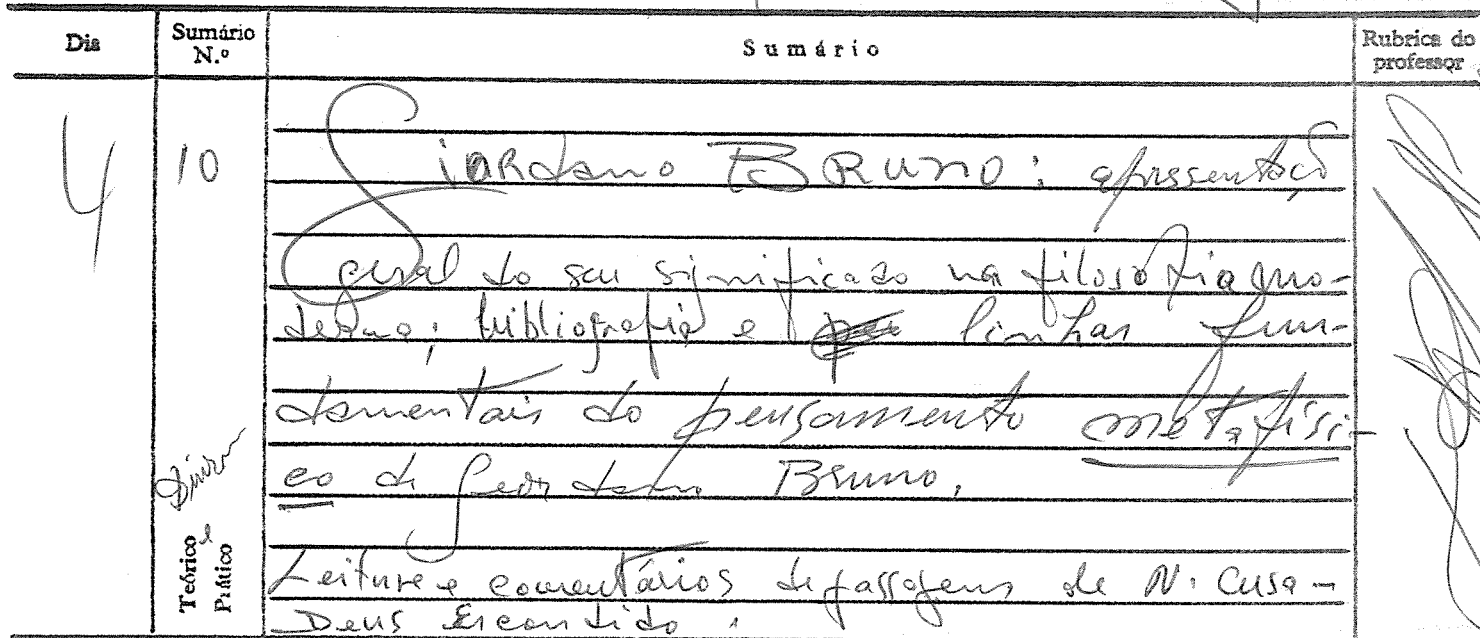 Dia
Sumário N.º
Sumário
Rubrica do professor
4
10
Giordano BRUNO: apresentação
geral do seu significado na filosofia mo-
derna; bibliografia e linhas fun-
damentais do pensamento metafísi-
co de Giordano Bruno.
Teórico e Prático
Leitura e comentários de passagens de N. Cusa -
Deus Escondido.